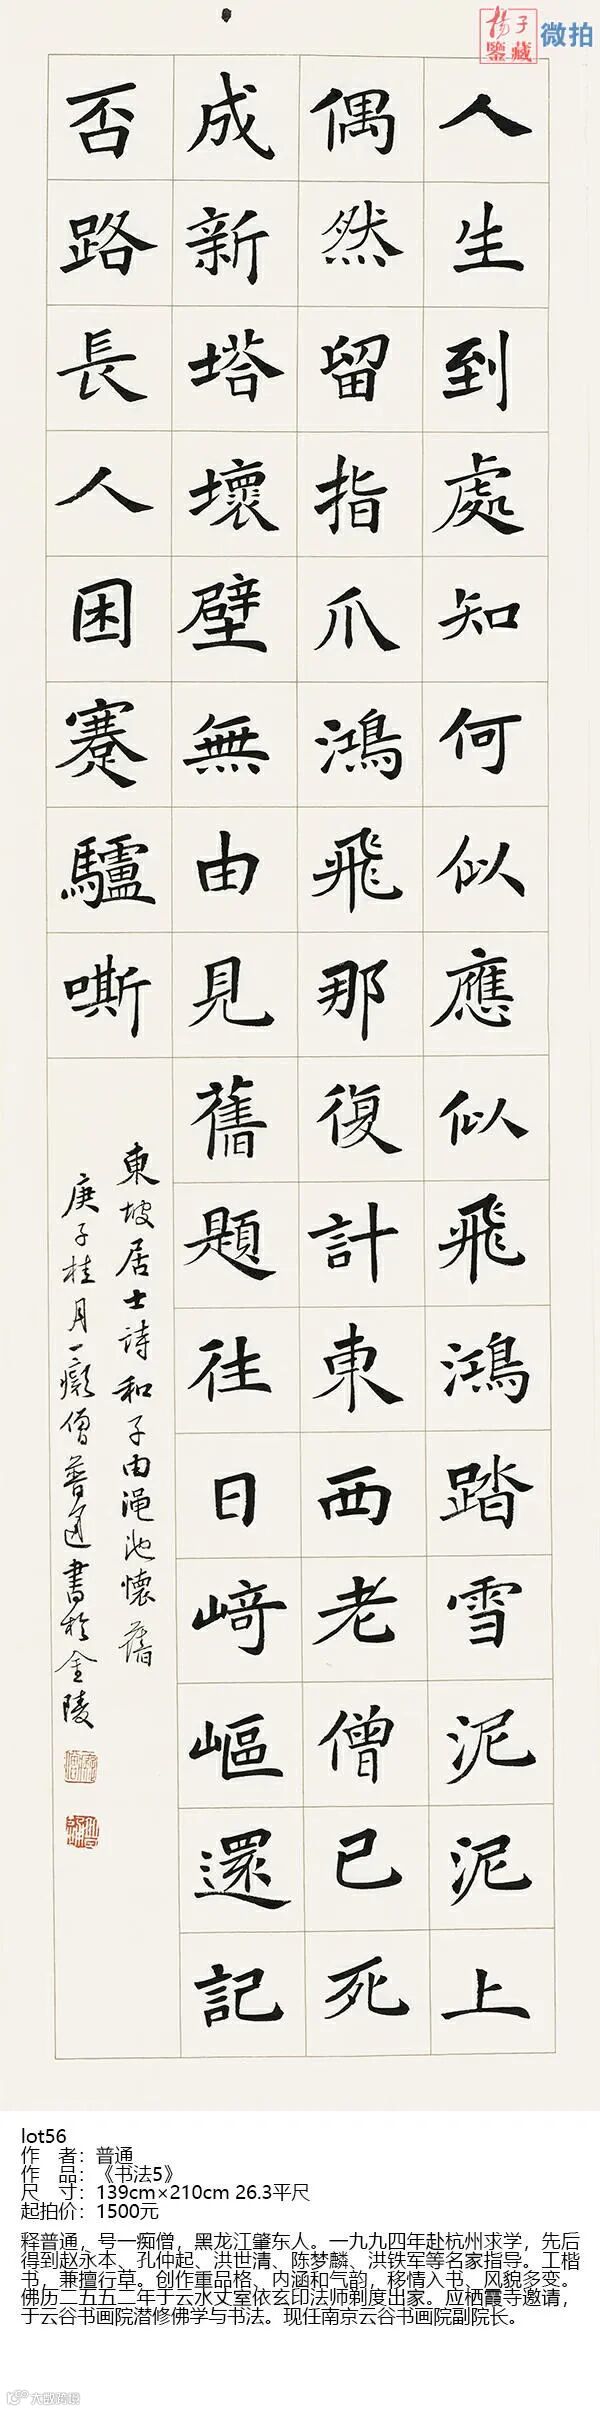 揚子
鑒藏
微拍
人生到處知何似應似飛鴻踏雪泥泥上
偶然留指爪鴻飛那復計東西老僧已死
成新塔壞壁無由見舊題往日崎嶇還記
否路長人困蹇驢嘶
東坡居士詩和子由渑池懷舊
庚子桂月一癡僧普通書於金陵
lot56
作 者：普通
作 品：《书法5》
尺 寸：139cm×210cm 26.3平尺
起拍价：1500元
释普通，号一痴僧，黑龙江肇东人。一九九四年赴杭州求学，先后
得到赵永本、孔仲起、洪世清、陈梦麟、洪铁军等名家指导。工楷
书，兼擅行草。创作重品格、内涵和气韵，移情入书、风貌多变。
佛历二五五二年于云水丈室依玄印法师剃度出家。应栖霞寺邀请，
于云谷书画院潜修佛学与书法。现任南京云谷书画院副院长。
大数跨境